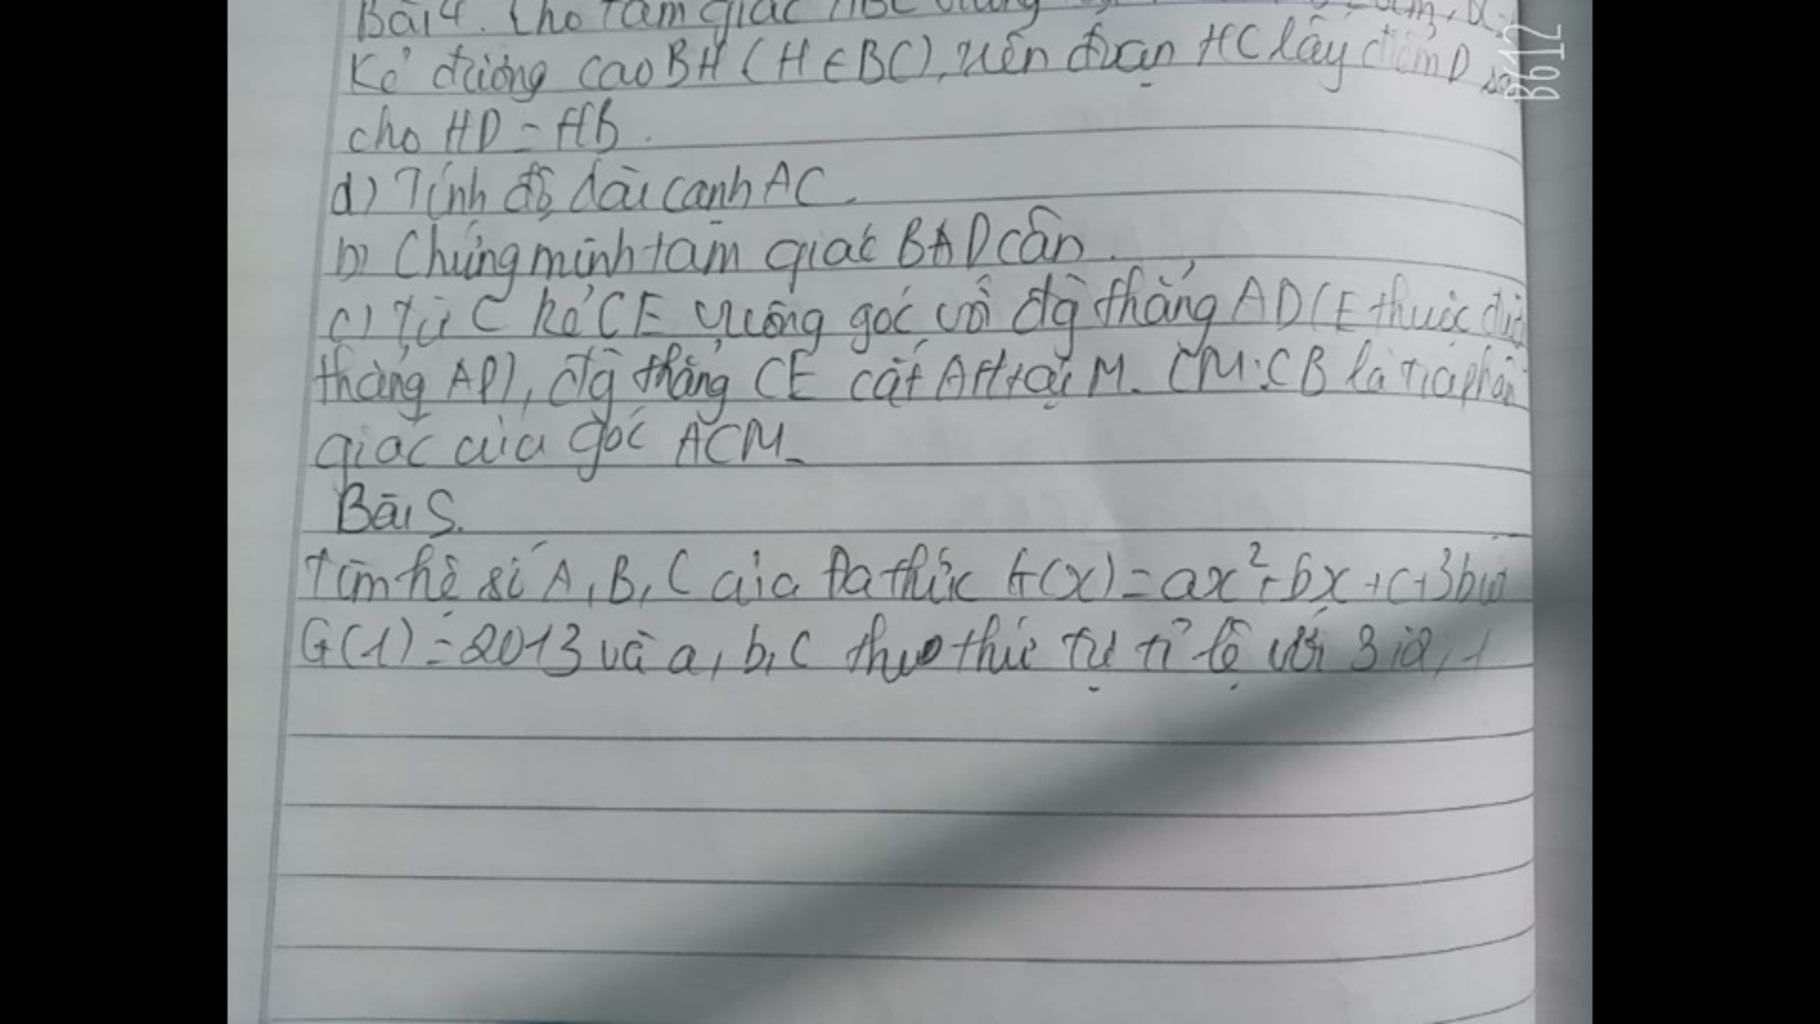 Bài 4. Cho tam giác ABC
Kẻ đường cao BH (H ∈ BC), trên đoạn HC lấy điểm D
cho HD = HB.
d) Tính độ dài cạnh AC.
b) Chứng minh tam giác BAD cân.
c) Từ C kẻ CE vuông góc với đg thẳng AD (E thuộc
thẳng AD), đg thẳng CE cắt AH tại M. CM: CB là tia phân
giác của góc ACM.
Bài 5.
tìm hệ số A, B, C của Đa thức G(x) = ax² + bx + c + 3
G(1) = 2013 và a, b, c theo thứ tự tỉ lệ với 3;2;1
B612